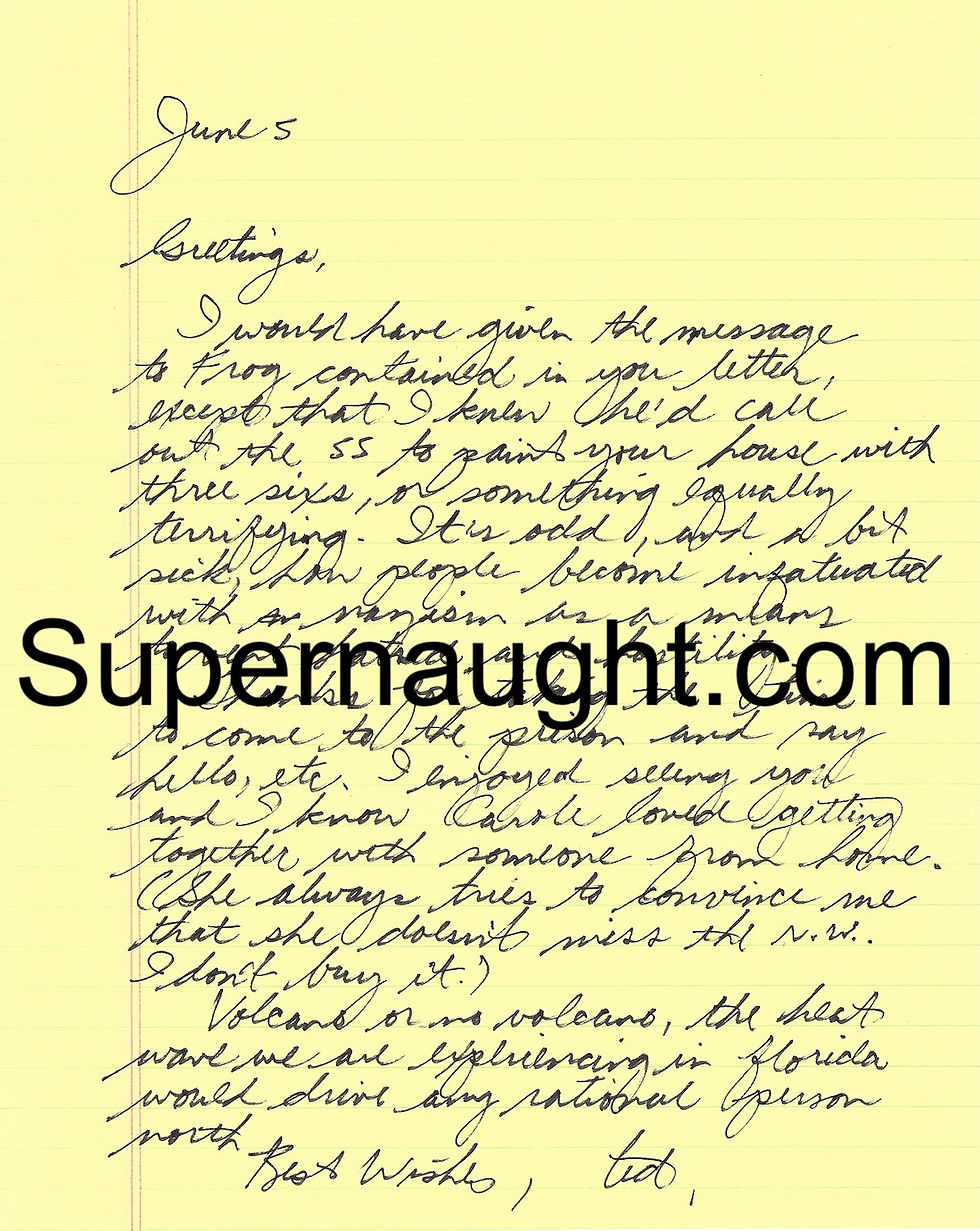 June 5
Greetings,
I would have given the message
to Frog contained in your letter,
except that I knew he'd call
out the SS to paint your house with
three sixs, or something equally
terrifying. It's odd, and a bit
sick, how people become infatuated
with nazism as a means
to vent hatred and hostility.
Supernaught.com
Thanks for taking the time
to come to the prison and say
hello, etc. I enjoyed seeing you
and I know Carole loved getting
together with someone from home.
(She always tries to convince me
that she doesn't miss the N.W.
I don't buy it.)
Volcano or no volcano, the heat
wave we are experiencing in florida
would drive any rational person
north.
Best Wishes, ted,